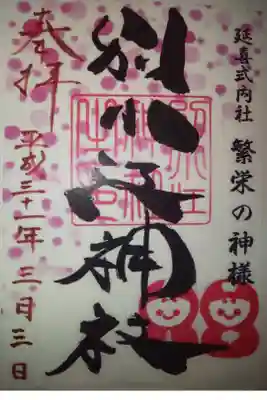 延喜式内社 繁栄の神様
別小江神社
奉拝
平成三十一年三月三日